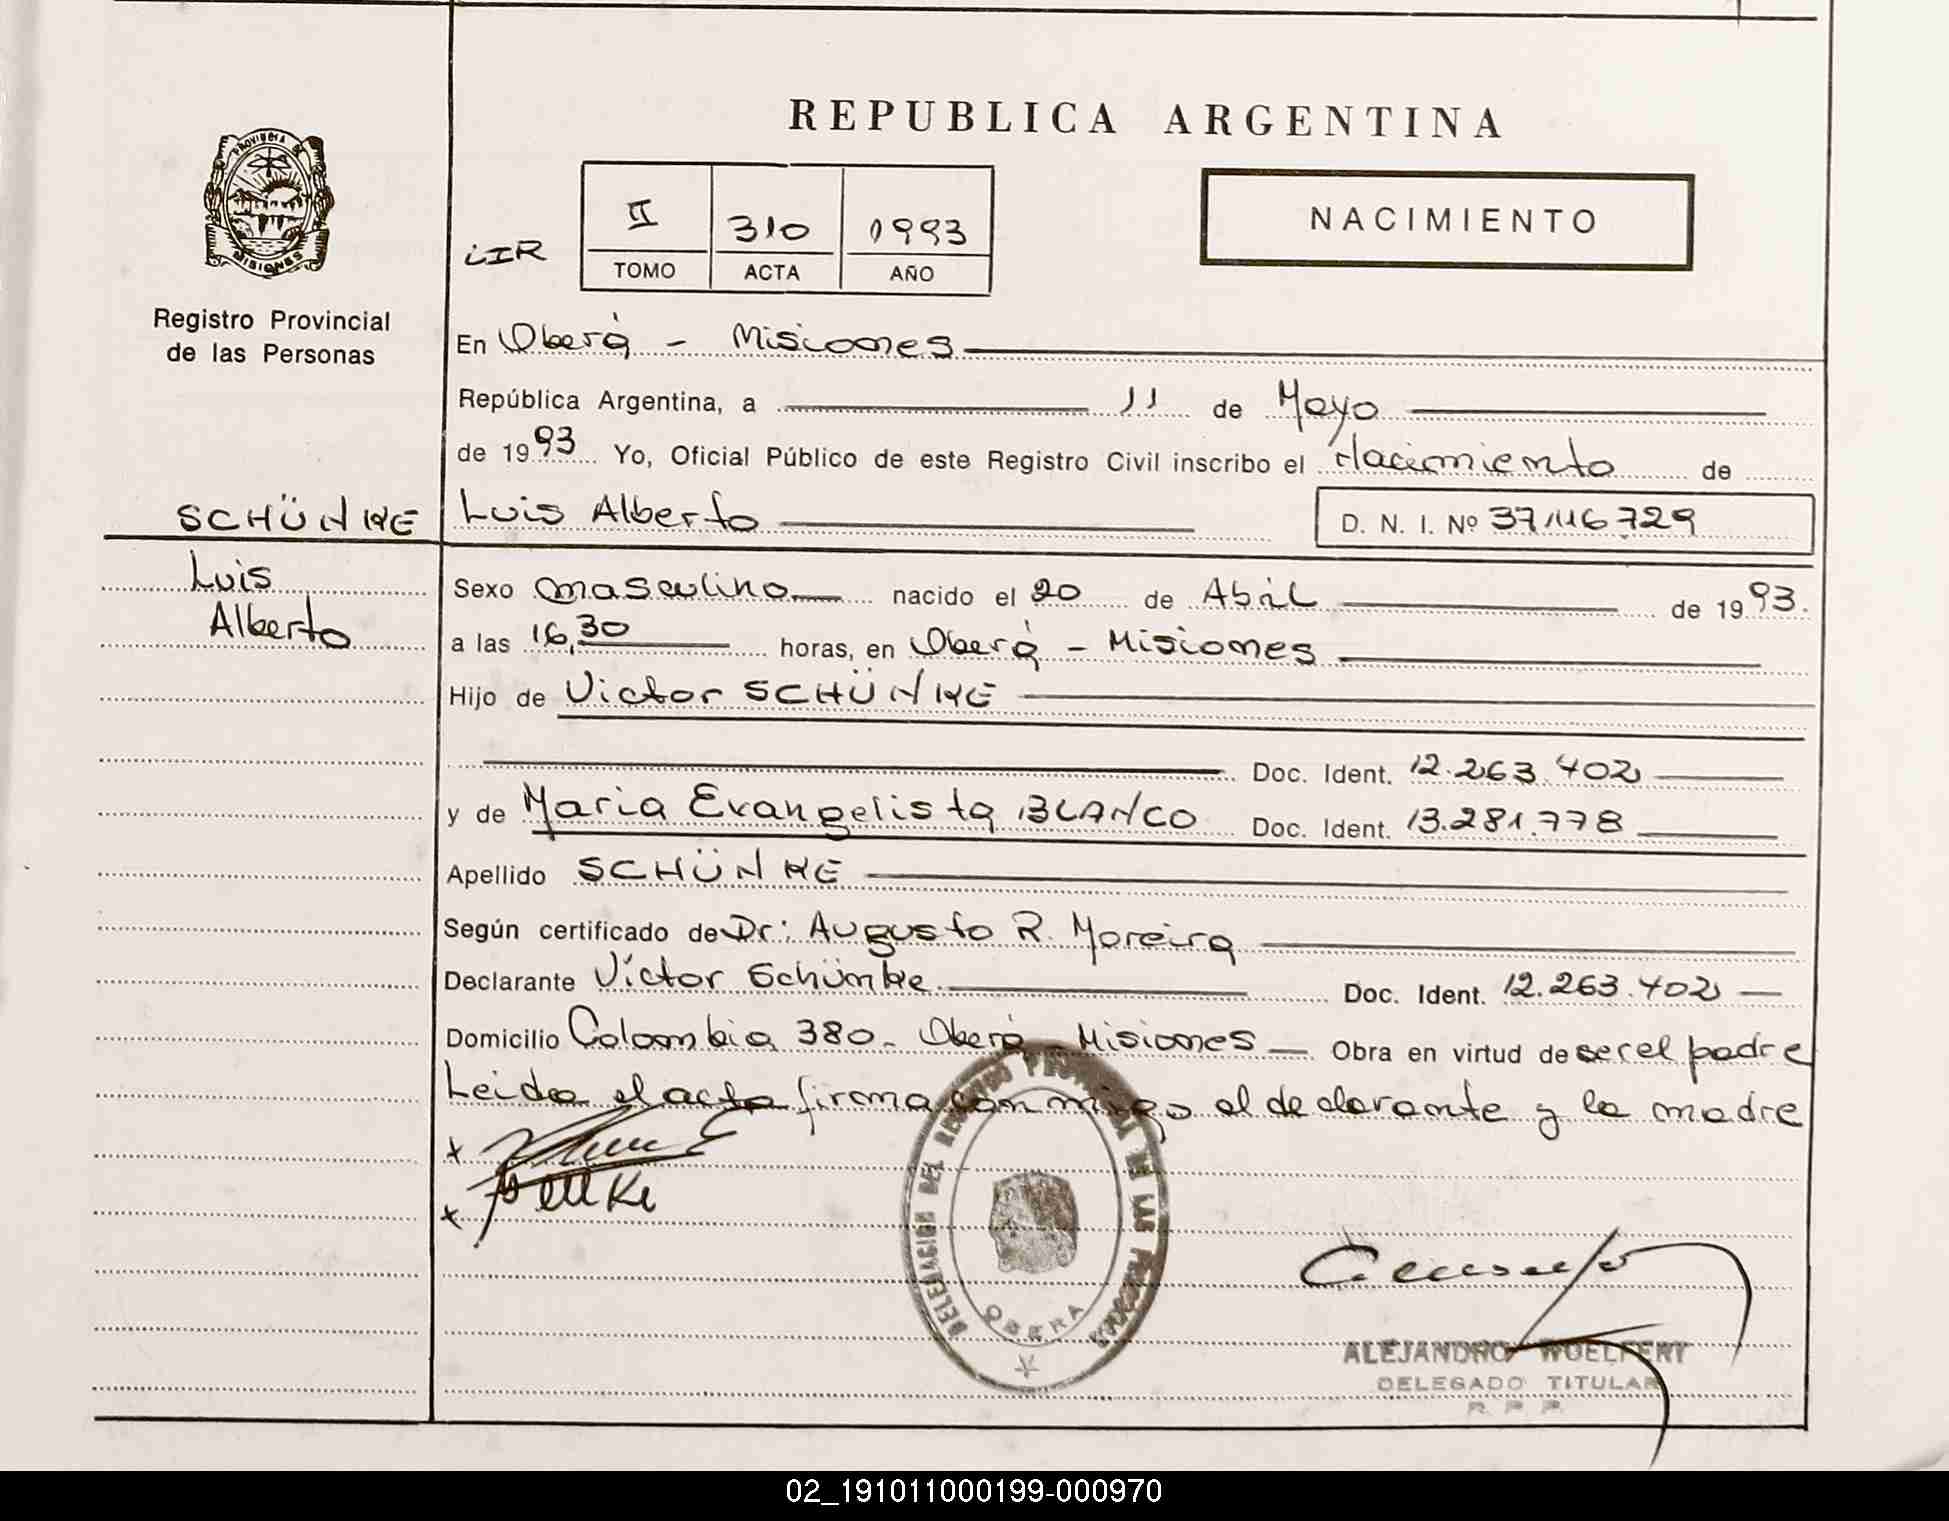 REPUBLICA ARGENTINA
PROVINCIA DE
MISIONES
Registro Provincial
de las Personas
LIR
II 310 1993
TOMO ACTA AÑO
NACIMIENTO
En Oberá - Misiones
República Argentina, a 11 de Mayo
de 1993 Yo, Oficial Público de este Registro Civil inscribo el Nacimiento de
SCHÜNKE
Luis
Alberto
Luis Alberto D. N. I. Nº 37.116.729
Sexo masculino nacido el 20 de Abril de 1993.
a las 16,30 horas, en Oberá - Misiones
Hijo de Victor SCHÜNKE
Doc. Ident. 12.263.402
y de Maria Evangelista BLANCO Doc. Ident. 13.281.778
Apellido SCHÜNKE
Según certificado de Dr: Augusto R. Moreira
Declarante Víctor Schünke Doc. Ident. 12.263.402
Domicilio Colombia 380 - Oberá - Misiones Obra en virtud de ser el padre
Leida el acta firma con migo el declarante y la madre
x
x
DELEGACION DEL REGISTRO PROVINCIAL DE LAS PERSONAS
OBERA
ALEJANDRO WOELFERT
DELEGADO TITULAR
R. P. P.
02_191011000199-000970